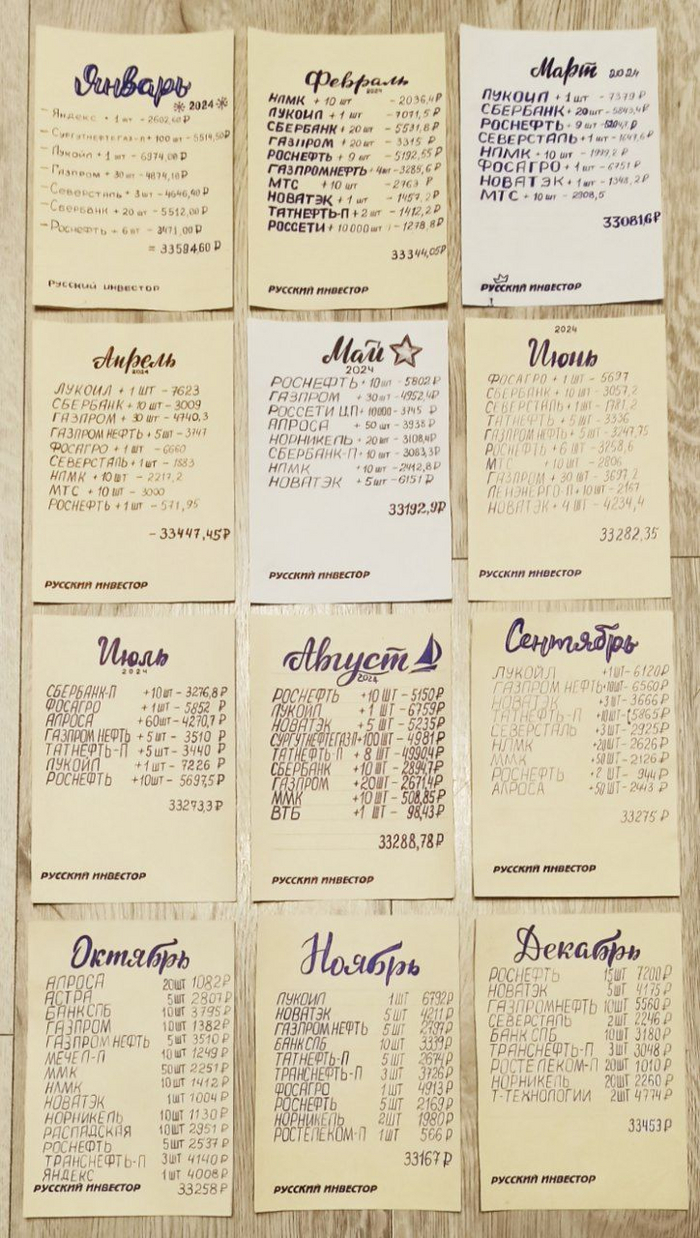 Январь
2024
- Яндекс + 1 шт - 2602,60₽
- Сургутнефтегаз-п + 100 шт - 5514,50₽
- Лукойл + 1 шт - 6974,00₽
- Газпром + 30 шт - 4874,10₽
- Северсталь + 3 шт - 4646,40₽
- Сбербанк + 20 шт - 5512,00₽
- Роснефть + 6 шт - 3471,00₽
= 33594,60₽
РУССКИЙ ИНВЕСТОР
Февраль
2024
НЛМК + 10 шт - 2036,4₽
ЛУКОЙЛ + 1 шт - 7071,5₽
СБЕРБАНК + 20 шт - 5531,8₽
ГАЗПРОМ + 20 шт - 3315₽
РОСНЕФТЬ + 9 шт - 5192,55₽
ГАЗПРОМНЕФТЬ + 4 шт - 3285,6₽
МТС + 10 шт - 2763₽
НОВАТЭК + 1 шт - 1457,2₽
ТАТНЕФТЬ-П + 2 шт - 1412,2₽
РОССЕТИ + 10000 шт - 1278,8₽
33344,05₽
РУССКИЙ ИНВЕСТОР
Март 2024
ЛУКОЙЛ + 1 шт - 7379₽
СБЕРБАНК + 20 шт -
РОСНЕФТЬ + 9 шт -
СЕВЕРСТАЛЬ + 1 шт -
НЛМК + 10 шт -
ФОСАГРО + 1 шт - 6751₽
НОВАТЭК + 1 шт - 1348,2₽
МТС + 10 шт - 2908,5
33081,6₽
РУССКИЙ ИНВЕСТОР
Апрель
2024
ЛУКОИЛ + 1 ШТ - 7623
СБЕРБАНК + 10 шт - 3009
ГАЗПРОМ + 30 шт - 4740,3
ГАЗПРОМ НЕФТЬ + 5 шт - 3747
ФОСАГРО + 1 шт - 6660
СЕВЕРСТАЛЬ + 1 шт - 1883
НЛМК + 10 шт - 2217,2
МТС + 10 шт - 3000
РОСНЕФТЬ + 1 шт - 571,95
- 33447,45₽
РУССКИЙ ИНВЕСТОР
Май
2024
РОСНЕФТЬ + 10 шт - 5802₽
ГАЗПРОМ + 30 шт - 4952,4₽
РОССЕТИ Ц.П + 10000 - 3745 ₽
АЛРОСА + 50 шт - 3938₽
НОРНИКЕЛЬ + 20 шт - 3108,4₽
СБЕРБАНК-П + 10 шт - 3083,3₽
НЛМК + 10 шт - 2412,8₽
НОВАТЭК + 5 шт - 6151₽
33192,9₽
РУССКИЙ ИНВЕСТОР
2024
Июнь
ФОСАГРО + 1 ШТ - 5697
СБЕРБАНК + 10 шт - 3057,2
СЕВЕРСТАЛЬ + 1 шт - 1781,2
ТАТНЕФТЬ + 5 шт - 3336
ГАЗПРОМ НЕФТЬ + 5 шт - 3247,75
РОСНЕФТЬ + 6 шт - 3258,6
МТС + 10 шт - 2806
ГАЗПРОМ + 30 шт - 3697,2
ЛЕНЭНЕРГО-П + 10 шт - 2167
НОВАТЭК + 4 ШТ - 4234,4
33282,35
РУССКИЙ ИНВЕСТОР
Июль
2024
СБЕРБАНК-П + 10 шт - 3276,8₽
ФОСАГРО + 1 шт - 5852 ₽
АЛРОСА + 60 шт - 4270,7₽
ГАЗПРОМ НЕФТЬ + 5 шт - 3510 ₽
ТАТНЕФТЬ-П + 5 шт - 3440 ₽
ЛУКОЙЛ + 1 шт - 7226 ₽
РОСНЕФТЬ + 10 шт - 5697,5₽
33273,3₽
РУССКИЙ ИНВЕСТОР
Август
2024
РОСНЕФТЬ + 10 ШТ - 5150₽
ЛУКОЙЛ + 1 ШТ - 6759₽
НОВАТЭК + 5 ШТ - 5235₽
СУРГУТНЕФТЕГАЗ П + 100 ШТ - 4981₽
ТАТНЕФТЬ-П + 8 ШТ -
СБЕРБАНК + 10 ШТ - 2894,7₽
ГАЗПРОМ + 20 ШТ - 2671,4₽
ММК + 10 ШТ - 508,85₽
ВТБ + 1 ШТ - 98,43₽
33288,78₽
РУССКИЙ ИНВЕСТОР
Сентябрь
ЛУКОЙЛ + 1 ШТ - 6120₽
ГАЗПРОМ НЕФТЬ + 10 ШТ - 6560₽
НОВАТЭК + 3 ШТ - 3666₽
ТАТНЕФТЬ-П + 10 ШТ - 5865₽
СЕВЕРСТАЛЬ + 3 ШТ - 2925₽
НЛМК + 20 ШТ - 2626₽
ММК + 50 ШТ - 2126₽
РОСНЕФТЬ + 2 ШТ - 944₽
АЛРОСА + 50 ШТ - 2443 ₽
33275₽
РУССКИЙ ИНВЕСТОР
Октябрь
АЛРОСА 20 ШТ 1082₽
АСТРА 5 ШТ 2807₽
БАНК СПБ 10 ШТ 3795₽
ГАЗПРОМ 10 ШТ 1382₽
ГАЗПРОМ НЕФТЬ 5 ШТ 3510₽
МЕЧЕЛ-П 10 ШТ 1249₽
ММК 50 ШТ 2251₽
НЛМК 10 ШТ 1412₽
НОВАТЭК 1 ШТ 1004₽
НОРНИКЕЛЬ 10 ШТ 1130₽
РАСПАДСКАЯ 10 ШТ 2951₽
РОСНЕФТЬ 5 ШТ 2537₽
ТРАНСНЕФТЬ-П 3 ШТ 4140₽
ЯНДЕКС 1 ШТ 4008₽
РУССКИЙ ИНВЕСТОР 33258₽
Ноябрь
ЛУКОЙЛ 1 ШТ 6792₽
НОВАТЭК 5 ШТ 4211₽
ГАЗПРОМ НЕФТЬ 5 ШТ 2797₽
БАНК СПБ 10 ШТ 3339₽
ТАТНЕФТЬ-П 5 ШТ 2674₽
ТРАНСНЕФТЬ-П 3 ШТ 3726₽
ФОСАГРО 1 ШТ 4913₽
РОСНЕФТЬ 5 ШТ 2169₽
НОРНИКЕЛЬ 2 ШТ 1980₽
РОСТЕЛЕКОМ-П 1 ШТ 566₽
33167₽
РУССКИЙ ИНВЕСТОР
Декабрь
РОСНЕФТЬ 15 ШТ 7200₽
НОВАТЭК 5 ШТ 4175₽
ГАЗПРОМНЕФТЬ 10 ШТ 5560₽
СЕВЕРСТАЛЬ 2 ШТ 2246₽
БАНК СПБ 10 ШТ 3180₽
ТРАНСНЕФТЬ-П 3 ШТ 3048₽
РОСТЕЛЕКОМ-П 20 ШТ 1010₽
НОРНИКЕЛЬ 20 ШТ 2260₽
Т-ТЕХНОЛОГИИ 2 ШТ 4774₽
33453₽
РУССКИЙ ИНВЕСТОР